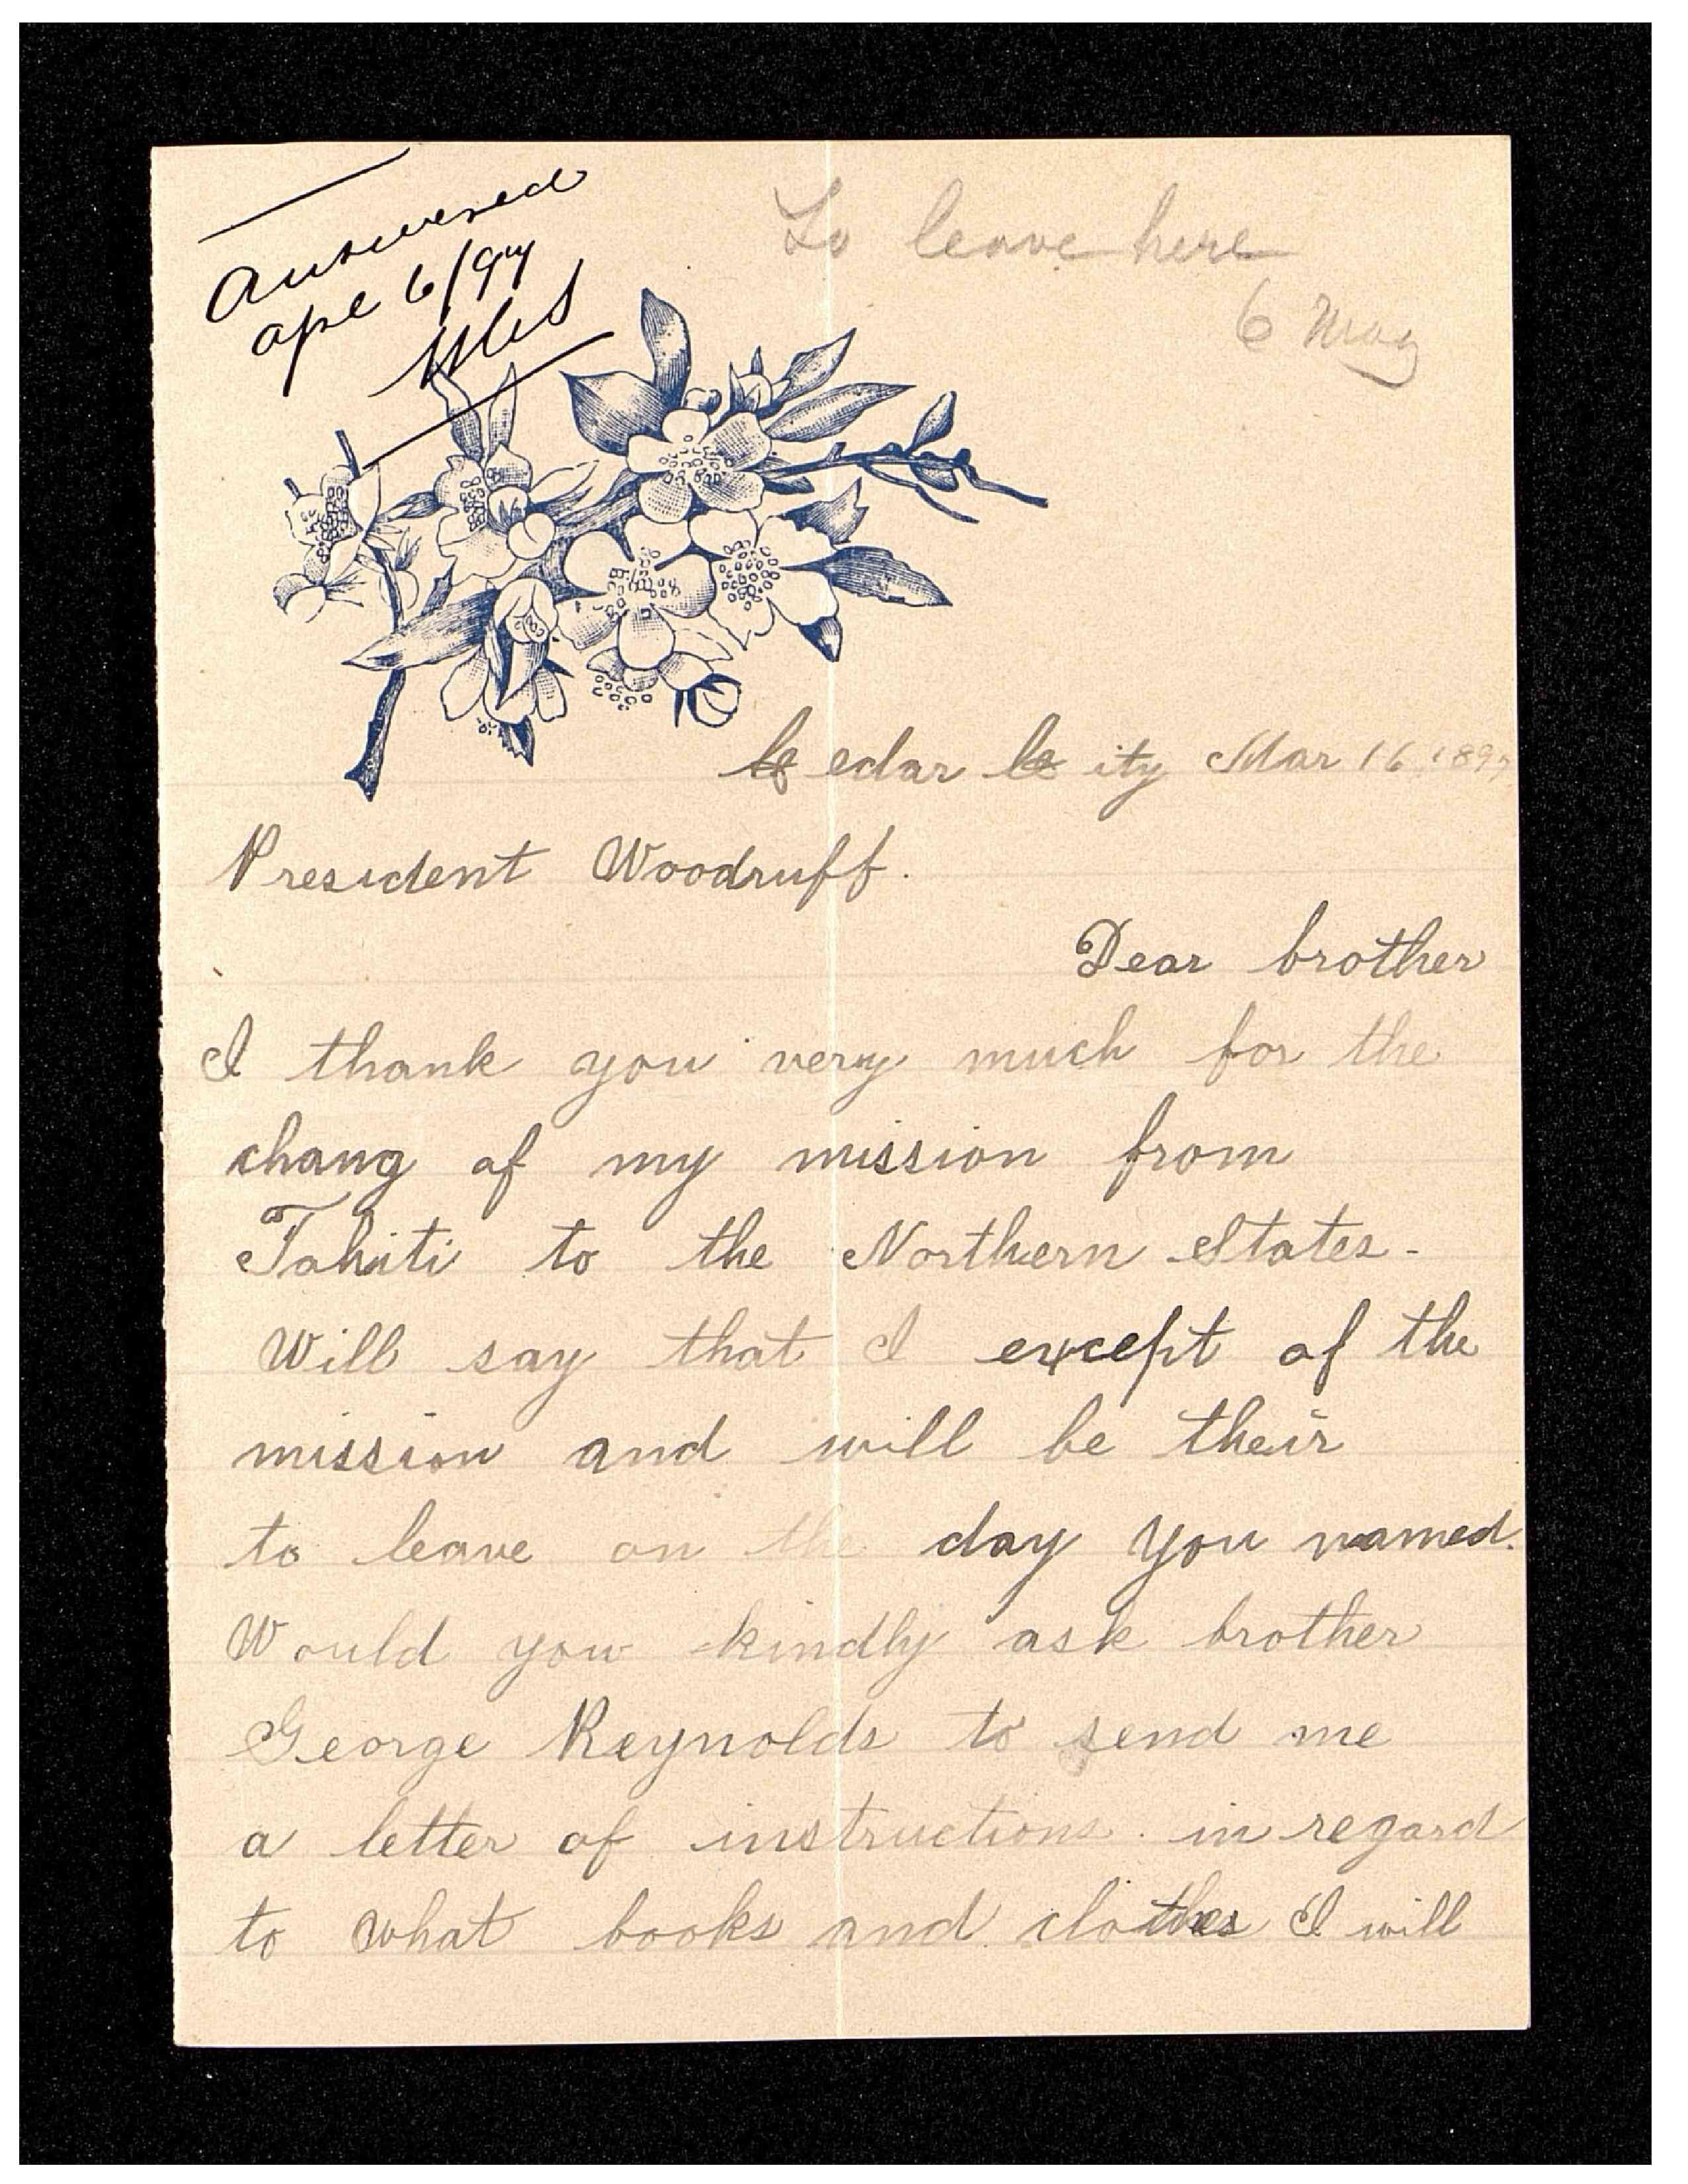 Answered
Apl 6/97
To leave here
6 May
Cedar City Mar 16 1897
President Woodruff.
Dear brother
I thank you very much for the
chang of my mission from
Tahiti to the Northern States-
Will say that I except of the
mission and will be their
to leave on the day you named.
Would you kindly ask brother
George Reynolds to send me
a letter of instructions. in regard
to what books and clothes I will